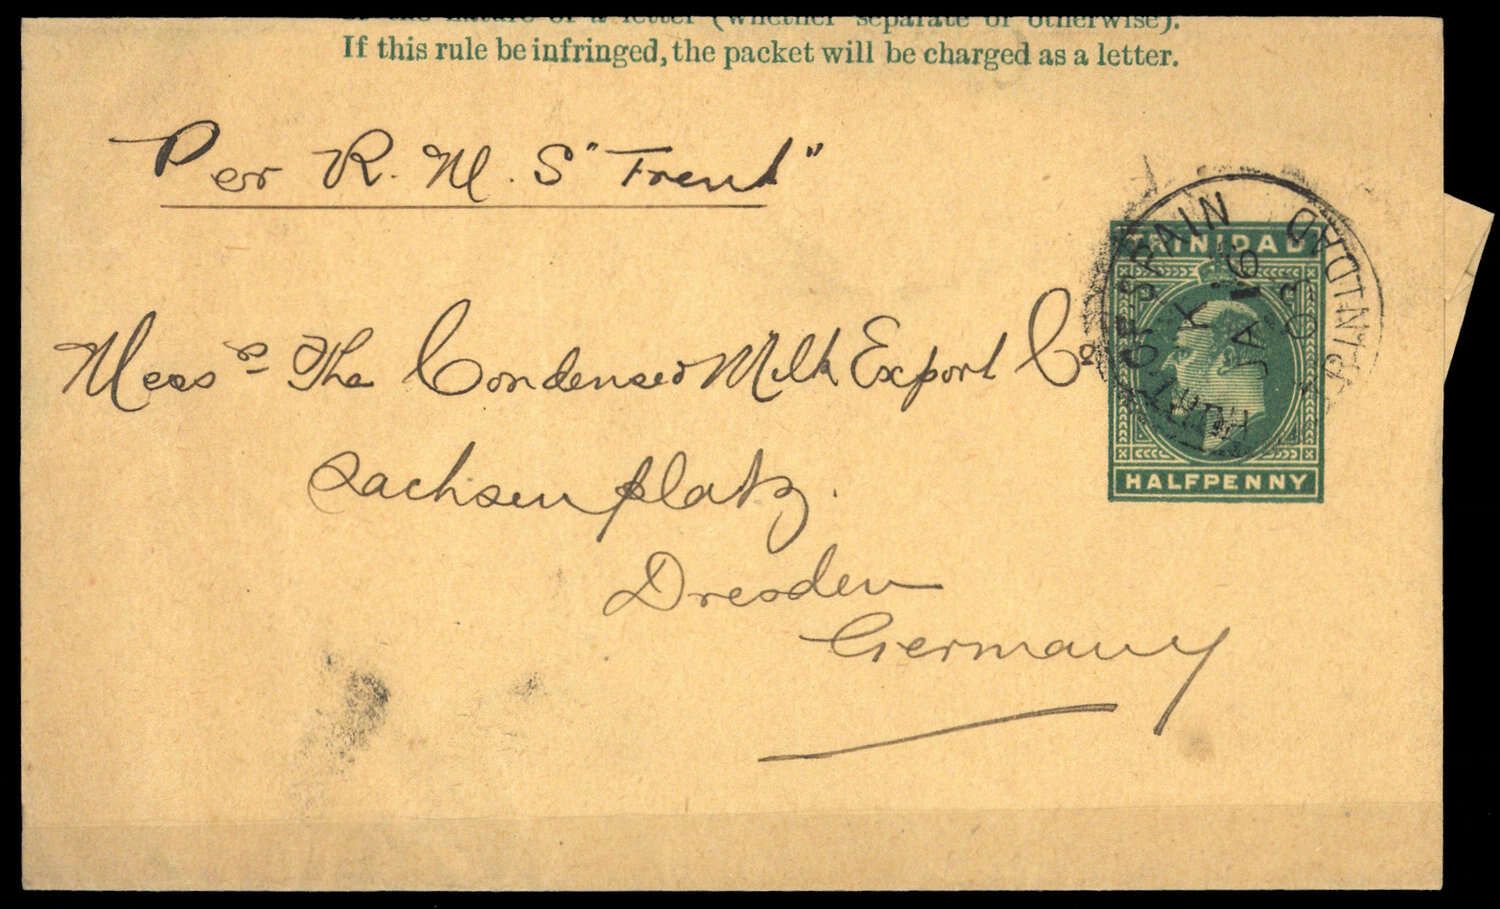 of the nature of a letter (whether separate or otherwise).
If this rule be infringed, the packet will be charged as a letter.
Per R. M. S "Trent"
Messrs The Condensed Milk Export Co
Sachsenplatz.
Dresden
Germany
TRINIDAD
HALFPENNY
PORT OF SPAIN
TRINIDAD
K
JA 16
03